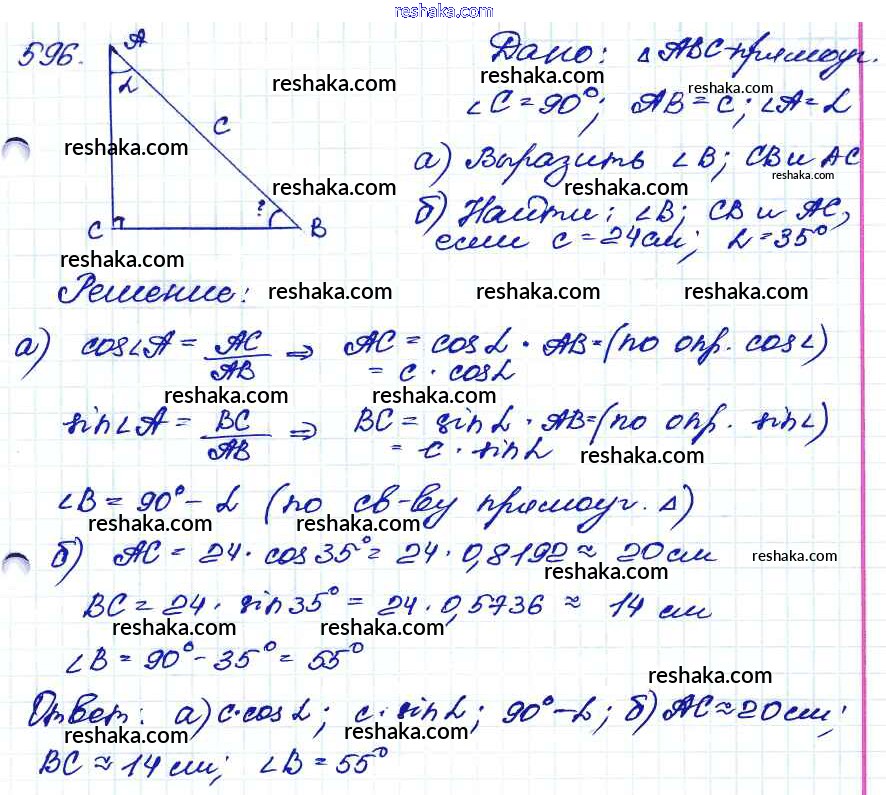 reshaka.com
596. A Дано: △ABC-прямоуг.
α reshaka.com reshaka.com reshaka.com
c ∠C=90°; AB=c; ∠A=α
reshaka.com а) Выразить ∠B; CB и AC
reshaka.com reshaka.com reshaka.com
? б) Найти: ∠B; CB и AC,
C B если c=24см; α=35°
reshaka.com
Решение: reshaka.com reshaka.com reshaka.com
а) cos∠A = AC/AB ⇒ AC = cosα · AB = (по опр. cos∠)
= c · cosα
reshaka.com reshaka.com
sin∠A = BC/AB ⇒ BC = sinα · AB = (по опр. sin∠)
= c · sinα
reshaka.com
∠B = 90° - α (по св-ву прямоуг. △)
reshaka.com reshaka.com
б) AC = 24 · cos35° = 24 · 0,8192 ≈ 20см reshaka.com
reshaka.com
BC = 24 · sin35° = 24 · 0,5736 ≈ 14 см
reshaka.com reshaka.com
∠B = 90° - 35° = 55°
reshaka.com
Ответ: а) c·cosα; c·sinα; 90°-α; б) AC≈20см;
reshaka.com reshaka.com
BC ≈ 14 см; ∠B = 55°